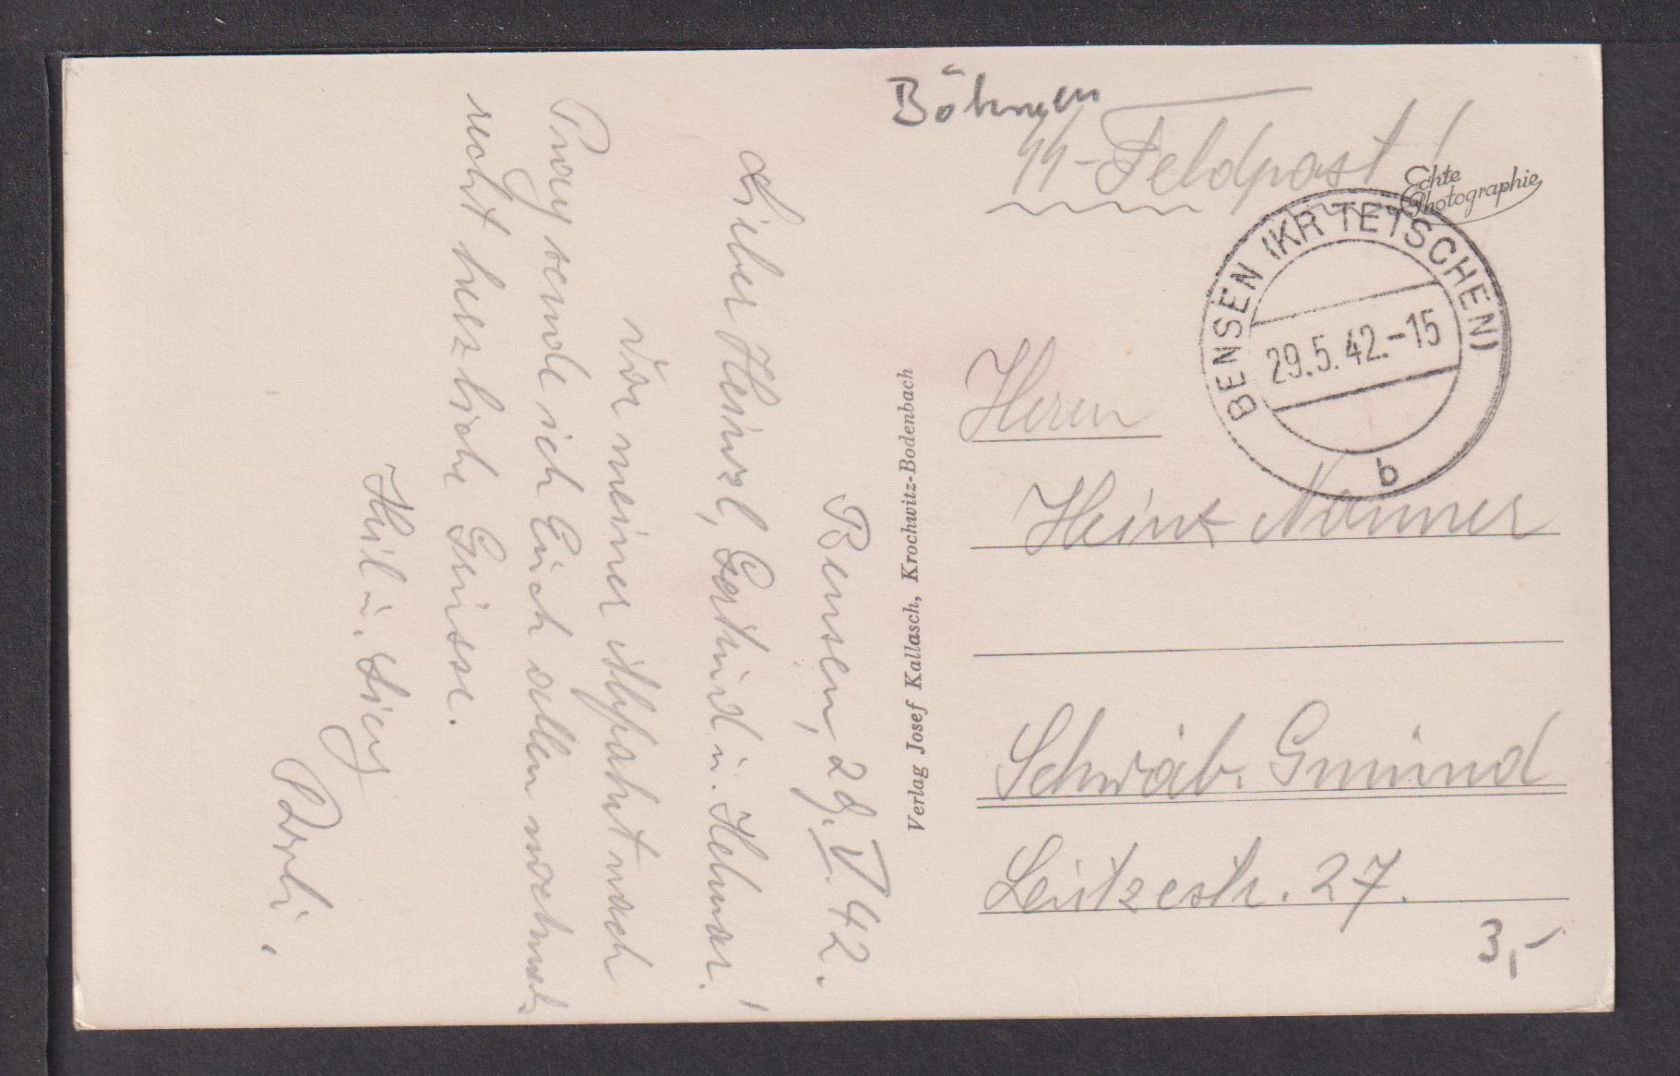 Böhmen
SS-Feldpost!
Echte
Photographie
BENSEN (KR TETSCHEN)
29.5.42.-15
b
Herrn
Heinz Nanner
Schwäb. Gmünd
Leutzestr. 27.
3,-
Verlag Josef Kallasch, Krochwitz-Bodenbach
Bensen, 29.V.42.
Lieber Heinzl, Gertrud u. Helmar!
Vor meiner Abfahrt nach
Prag sende ich Euch allen nochmals
recht herzliche Grüsse.
Heil u. Sieg